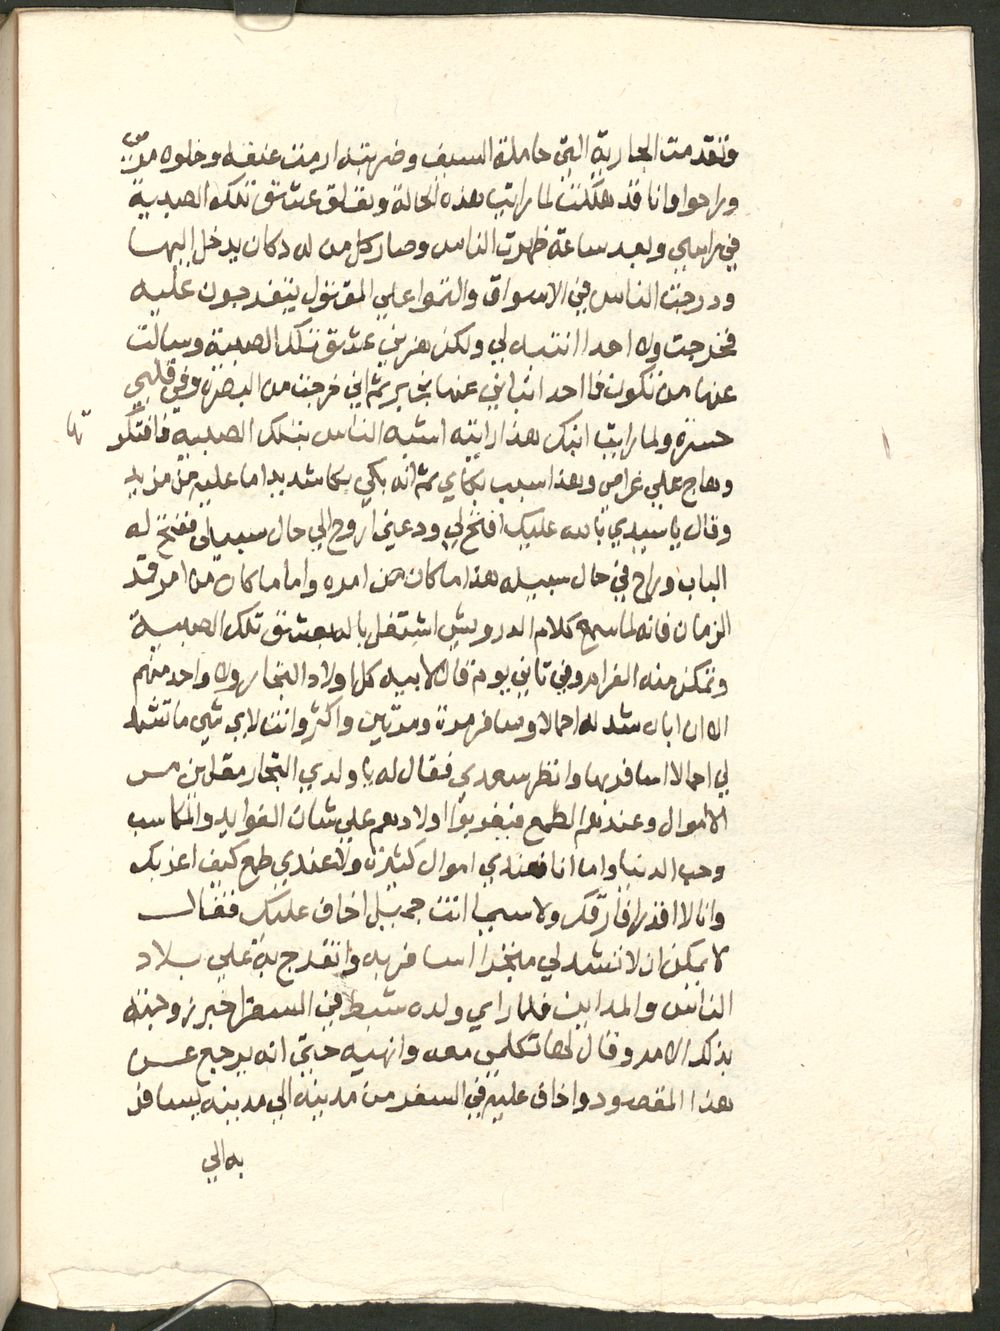 وتقدمت الجارية التي حاملة السيف وضربته ارمت عنقه وخلوه مرمي
وراحوا وانا قد هلكت لما رايت هذه الحالة وتعلق عشق تلك الصبية
في راسي وبعد ساعة ظهرت الناس وصار كل من له دكان يدخل اليها
ودرجت الناس في الاسواق والتموا علي المقتول يتفرجون عليه
فخرجت ولا احد انتبه لي ولكن هزني عشق تلك الصبية وسالت
عنها من تكون فما احد انباني عنها بخبر ثم اني خرجت من البصره وفي قلبي
حسره ولما رايت ابنك هذا رايته اشبه الناس بتلك الصبية فافتكرتها
وهاج علي غرامي وهذا سبب بكاي ثم انه بكي بكا شديد اما عليه من مزيد
وقال يا سيدي بالله عليك افتح لي ودعني اروح الي حال سبيلي ففتح له
الباب وراح في حال سبيله هذا ما كان من امره واما ما كان من امر قمر
الزمان فانه لما سمع كلام الدرويش اشتغل باله بعشق تلك الصبية
وتمكن منه الغرام وفي تاني يوم قال لابيه كل اولاد التجار ولا واحد منهم
الا ان اباه شد له احمالا وسافر مرة ومرتين واكثر وانت لاي شي ما تشد
لي احمالا اسافر بها وانظر سعدي فقال له يا ولدي التجار مقلين من
الاموال وعندهم الطمع فيغربوا اولادهم علي شان الفوايد والمكاسب
وحب الدنيا واما انا فعندي اموال كثيره ولا عندي طمع كيف اغربك
وانا لا اقدر افارقك ولا سيما انت جميل اخاف عليك فقال
لا يمكن ان لا تشد لي متجرا اسافر به واتفرج به علي بلاد
الناس والمداين فلما راي ولده شبط في السفر اخبر زوجته
بذلك الامر وقال لها تكلمي معه وانهيه حتي انه يرجع عن
هذا المقصود واخاف عليه في السفر من مدينه الي مدينه يسافر
به الي